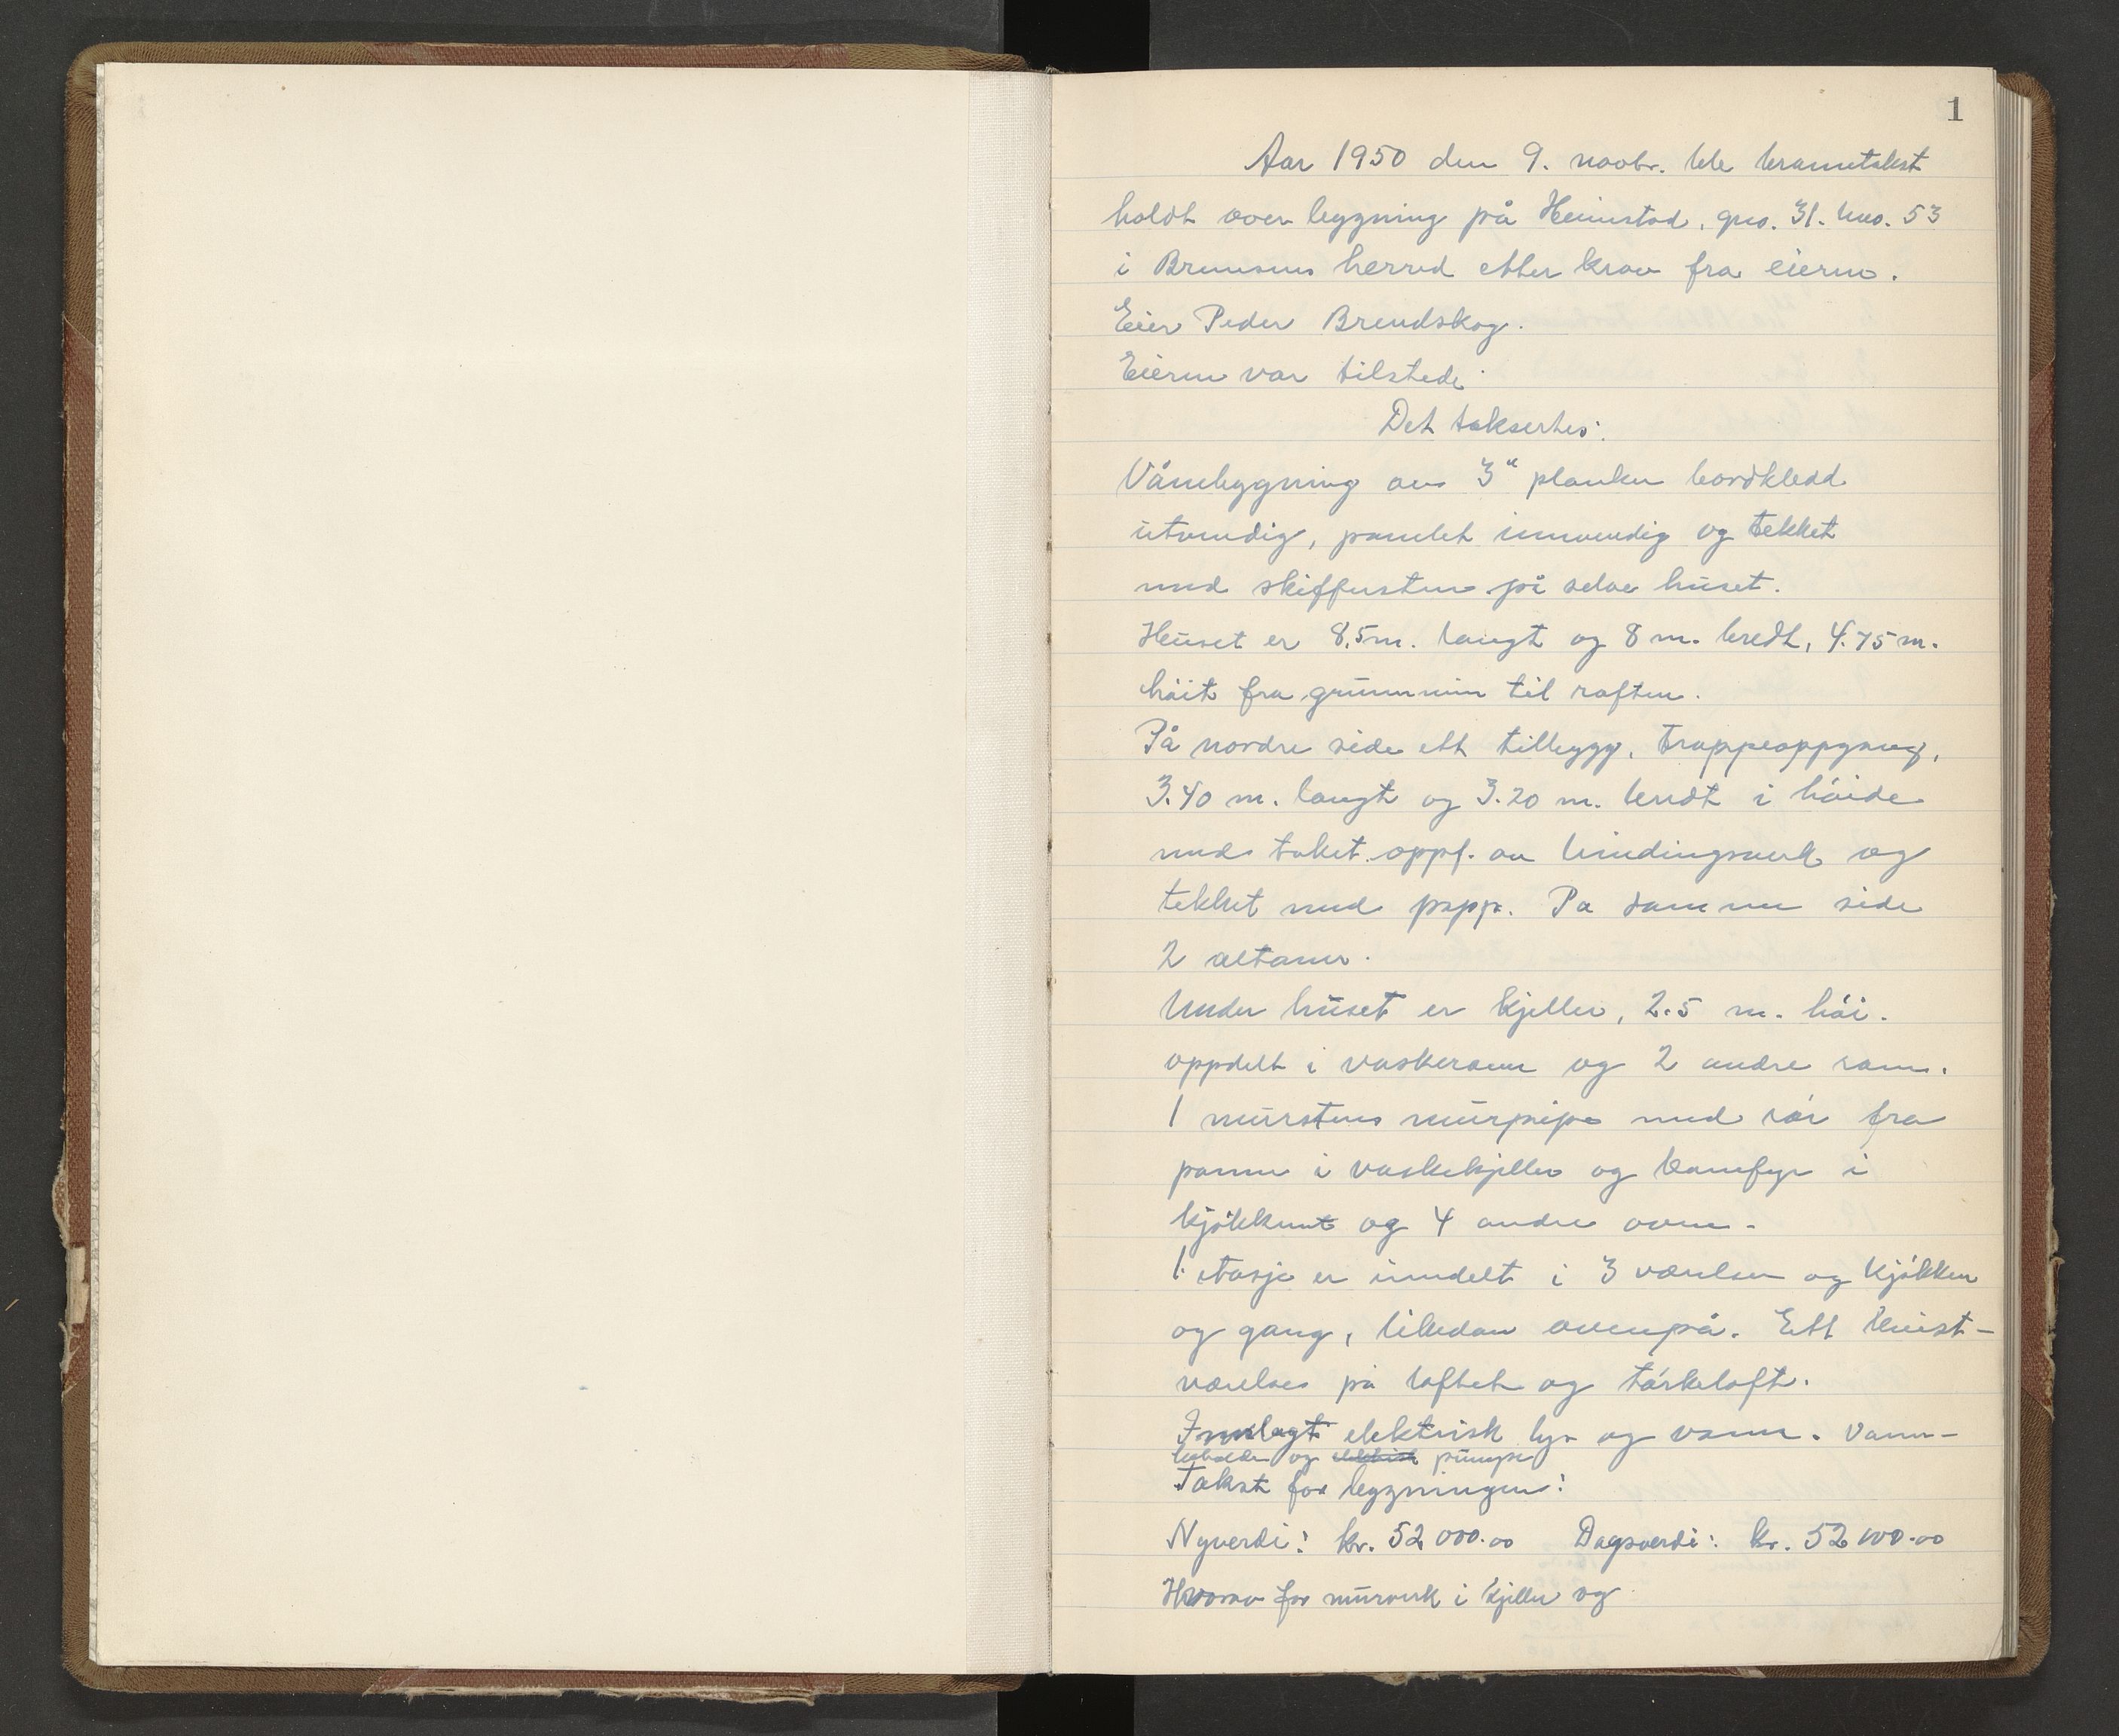 1
Aar 1950 den 9. novbr. ble branntakst
holdt over bygning på Heimstad, gno. 31. bno. 53
i herred etter krav fra eieren.
Eier Peder Brendskag.
Eieren var tilstede.
Det taksertes:
Vånebygning av 3" planker bordkledd
utvendig, panelet innvendig og tekket
med skiffersten på selve huset.
Huset er 8,5 m. langt og 8 m. bredt, 4.75 m.
høit fra grunnmur til raften.
På nordre side ett tilbygg, trappeoppgang,
3.40 m. langt og 3.20 m. bredt i høide
med taket oppf. av bindingsverk og
tekket med papp. Pa samme side
2 altaner.
Under huset er kjeller, 2.5 m. høi.
oppdelt i vaskerom og 2 andre rom.
1 murstens murpipe med rør fra
panne i vaskekjeller og kamfyr i
kjøkkenet og 4 andre ovner.
1. etasje er inndelt i 3 værelser og kjøkken
og gang, likedan ovenpå. Ett kvist-
værelse på loftet og tørkeloft.
Innlagt elektrisk lys og vann. Vann-
beholder og elektrisk pumpe
Takst for bygningen:
Nyverdi: kr. 52 000.00 Dagsverdi: kr. 52 000.00
Hvorav for murverk i kjeller og